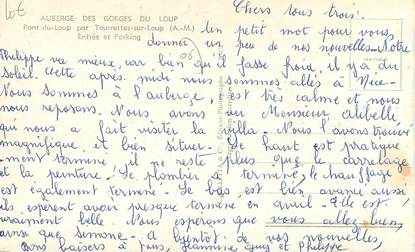 Lot
AUBERGE DES GORGES DU LOUP
Pont-du-Loup par Tourrettes-sur-Loup (A.-M.)
Entrée et Parking
06
Chers tous trois.
Un petit mot pour vous
donner un peu de nos nouvelles. Notre
Philippe va mieux, car bien qu'il fasse froid, il y a du
soleil. Cette après-midi nous sommes allés à Nice.
Nous sommes à l'auberge, est très calme et nous
nous reposons. Nous avons vu Monsieur
qui nous a fait visiter la villa. Nous l'avons trouvée
magnifique, et bien située. Le haut est pratique-
-ment terminé, il ne reste plus que le carrelage
et la peinture. Le plombier terminé, le chauffage
est également terminé. Le bas est bien avancé aussi
ils espèrent avoir presque terminé en avril. Elle est
vraiment belle. Nous espérons que vous allez bien,
ainsi que Simone. A bientôt de vos nouvelles,
Bons baisers à tous, Philippe